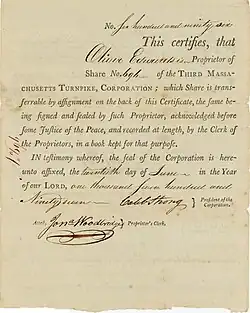 No. six hundred and ninety six
This certifies, that
Oliver Edwards is Proprietor of
Share No. 696 of the Third Massa-
chusetts Turnpike, Corporation; which Share is trans-
ferrable by assignment on the back of this Certificate, the same be-
ing signed and sealed by such Proprietor, acknowledged before
some Justice of the Peace, and recorded at length, by the Clerk of
the Proprietors, in a book kept for that purpose.
IN testimony whereof, the seal of the Corporation is here-
unto affixed, the twentieth day of June in the Year
of our Lord, one thousand seven hundred and
Ninety seven Caleb Strong } President of the
Corporation.
Attest, Jona Woodbridge Proprietor's Clerk.